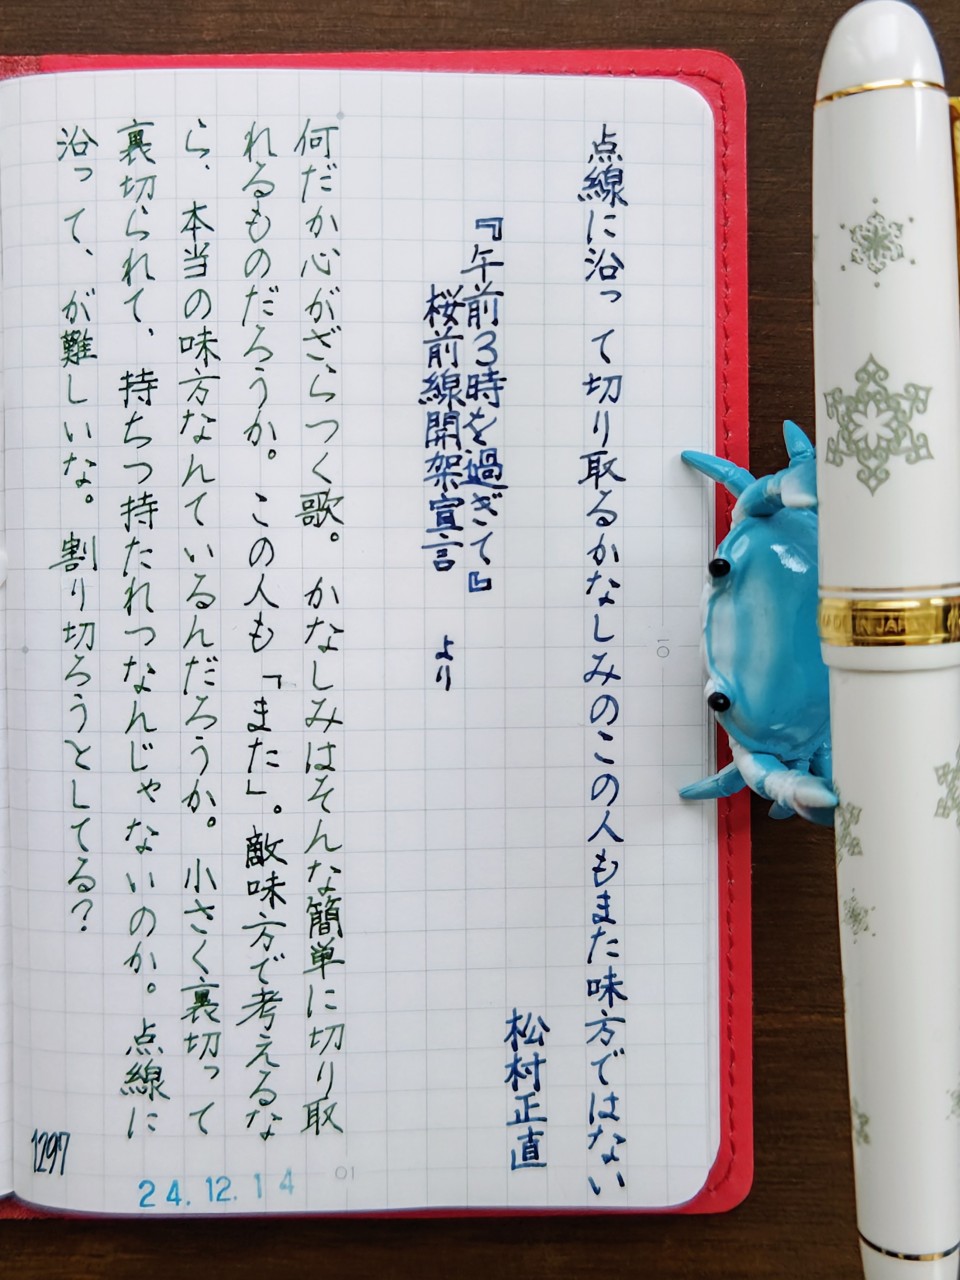 点線に沿って切り取るかなしみのこの人もまた味方ではない
松村正直
『午前3時を過ぎて』
桜前線開架宣言 より
何だか心がざらつく歌。かなしみはそんな簡単に切り取
れるものだろうか。この人も「また」。敵味方で考えるな
ら、本当の味方なんているんだろうか。小さく裏切って
裏切られて、持ちつ持たれつなんじゃないのか。点線に
沿って、が難しいな。割り切ろうとしてる?
1297
24.12.14
10
10
MADE IN JAPAN